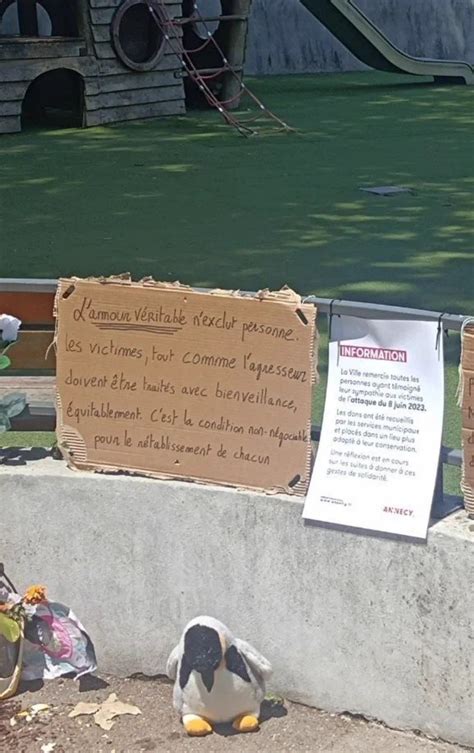 L'amour véritable n'exclut personne.
Les victimes, tout comme l'agresseur
doivent être traités avec bienveillance,
équitablement. C'est la condition non-négociable
pour le rétablissement de chacun
INFORMATION
La Ville remercie toutes les
personnes ayant témoigné
leur sympathie aux victimes
de l'attaque du 8 juin 2023.
Les dons ont été recueillis
par les services municipaux
et placés dans un lieu plus
adapté à leur conservation.
Une réflexion est en cours
sur les suites à donner à ces
gestes de solidarité.
ANNECY